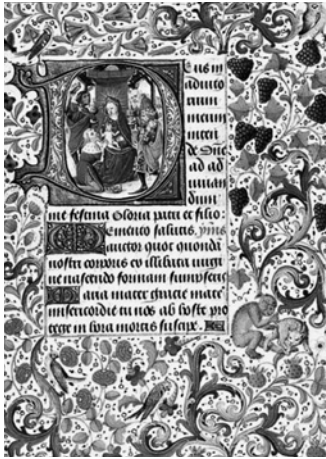 Deus in
adiuto
rium
meum
inten
de Dne
ad ad
iuuan
dum
me festina Gloria patri et filio:
Memento salutis, ymŝ
auctor quot quondā
nostri corporis ex illibata uirgi
ne nascendo formam sumpseris
Maria mater gracie mater
misericordie tu nos ab hoste pro
tege in hora mortis suscipe.